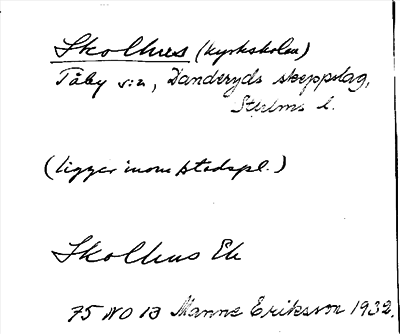 Skolhus (kyrkskolan)
Täby s:n, Danderyds skeppslag,
Sthlms l.
(ligger inom stadspl.)
Skolhus Ek
75 NO 13 Manne Eriksson 1932.